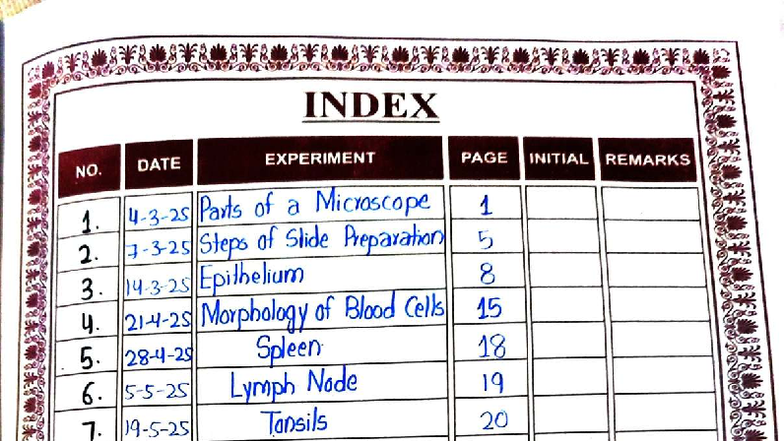 INDEX
NO. DATE EXPERIMENT PAGE INITIAL REMARKS
1. 4-3-25 Parts of a Microscope 1
2. 7-3-25 Steps of Slide Preparation 5
3. 14-3-25 Epithelium 8
4. 21-4-25 Morphology of Blood Cells 15
5. 28-4-25 Spleen 18
6. 5-5-25 Lymph Node 19
7. 19-5-25 Tonsils 20